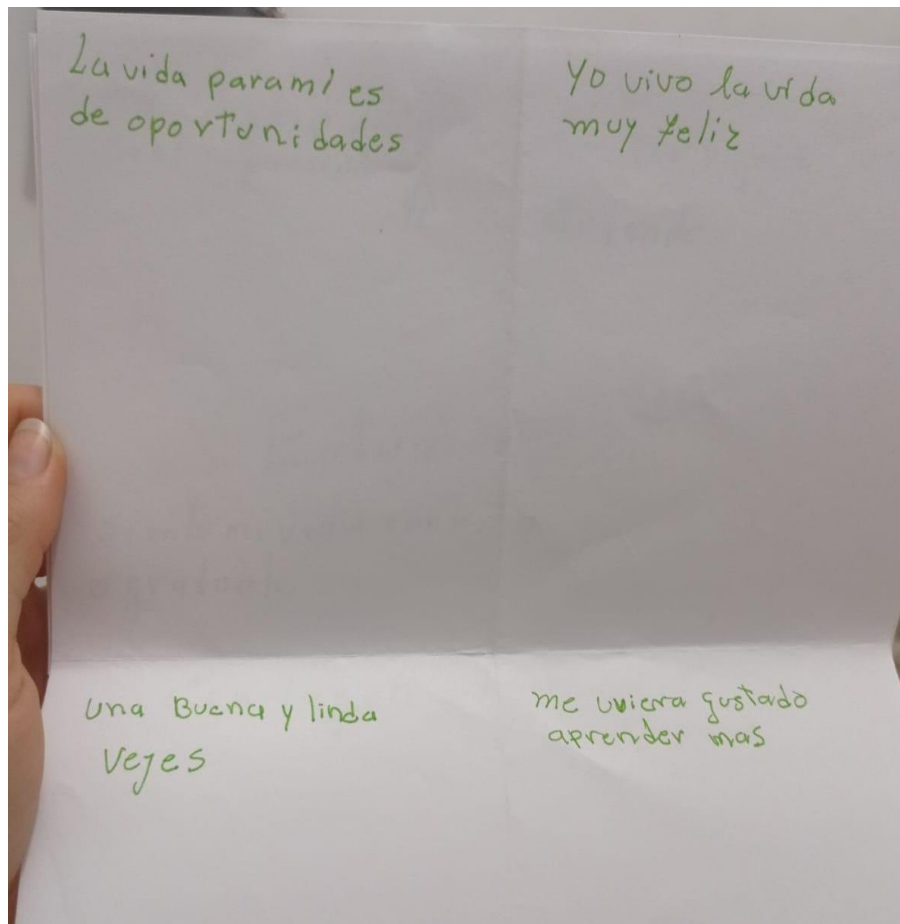 La vida parami es
de oportunidades
Yo vivo la vida
muy feliz
una Buena y linda
Vejes
me uviera gustado
aprender mas